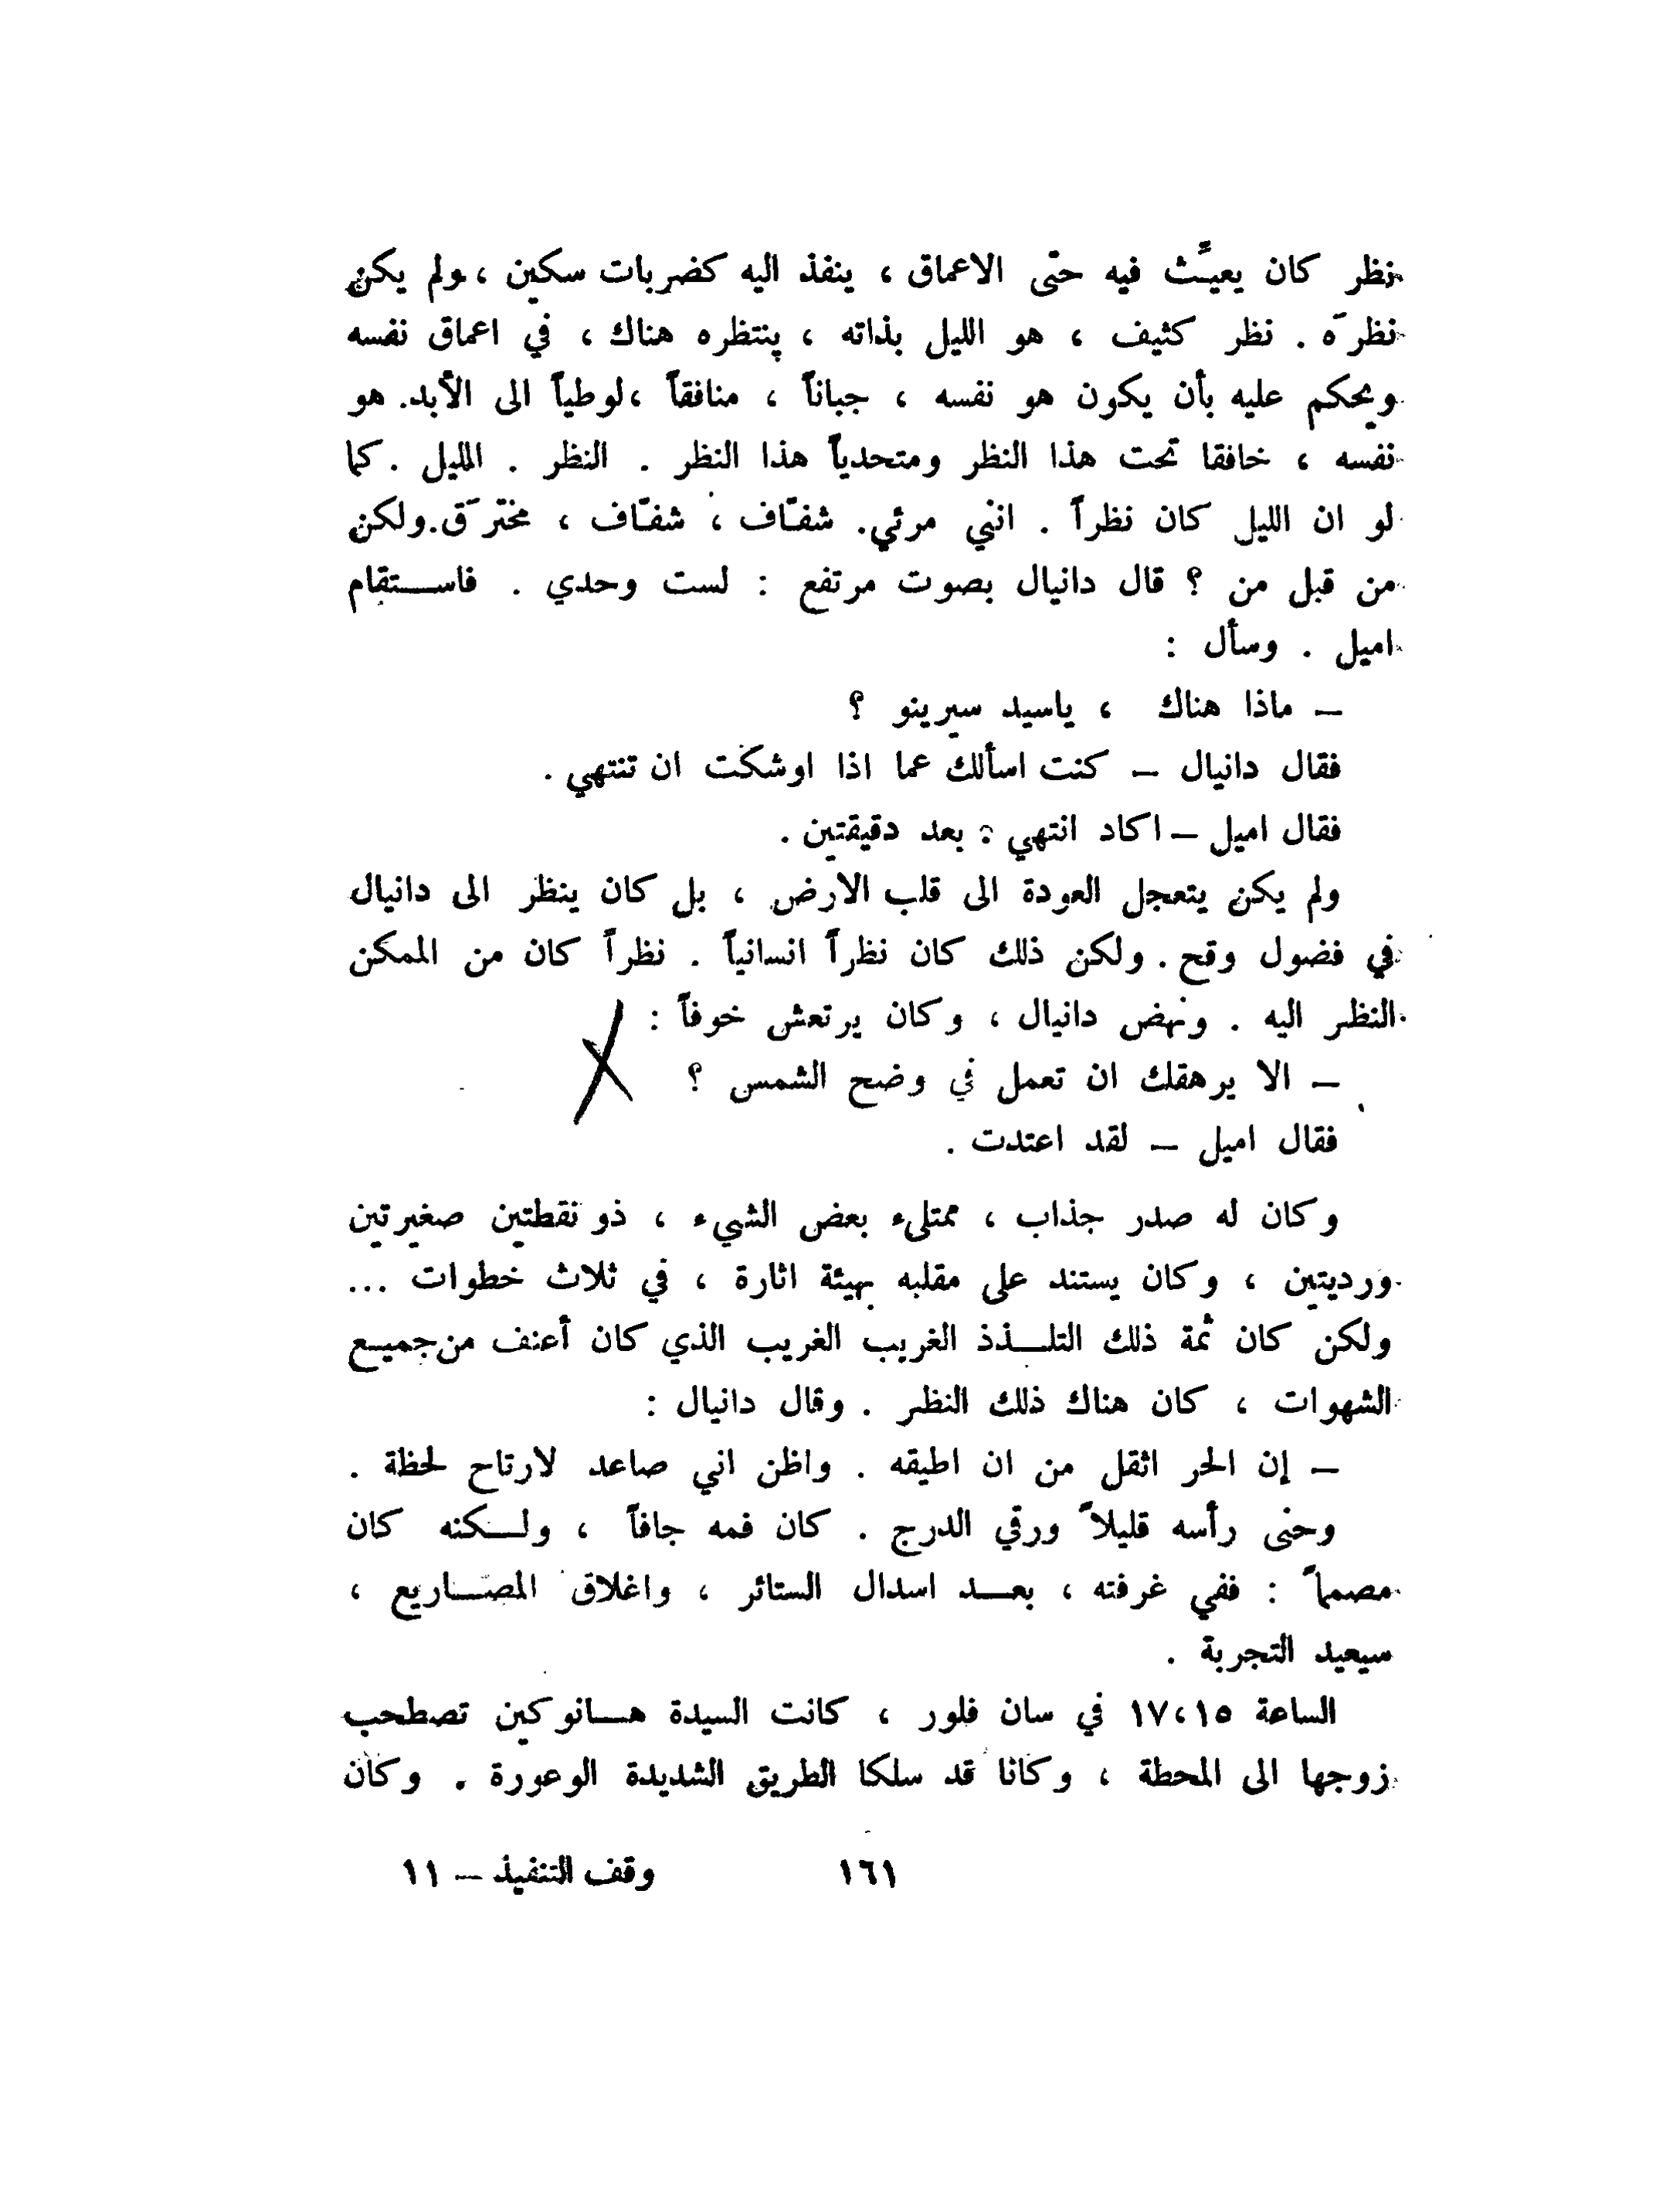 نظر كان يعيّث فيه حتى الاعماق ، ينفذ اليه كضربات سكين ، ولم يكن
نظرَه . نظر كثيف ، هو الليل بذاته ، ينتظره هناك ، في اعماق نفسه
ويحكم عليه بأن يكون هو نفسه ، جباناً ، منافقاً ، لوطياً الى الأبد. هو
نفسه ، خافقا تحت هذا النظر ومتحدياً هذا النظر . النظر . الليل . كما
لو ان الليل كان نظراً . انني مرئي. شفّاف ، شفّاف ، مخترَق.ولكن
من قبل من ؟ قال دانيال بصوت مرتفع : لست وحدي . فاستقام
اميل . وسأل :
– ماذا هناك ، ياسيد سيرينو ؟
فقال دانيال – كنت اسألك عما اذا اوشكت ان تنتهي .
فقال اميل – اكاد انتهي ؛ بعد دقيقتين .
ولم يكن يتعجل العودة الى قلب الارض ، بل كان ينظر الى دانيال
في فضول وقح . ولكن ذلك كان نظراً انسانياً . نظراً كان من الممكن
النظر اليه . ونهض دانيال ، وكان يرتعش خوفاً :
– الا يرهقك ان تعمل في وضح الشمس ؟
فقال اميل – لقد اعتدت .
وكان له صدر جذاب ، ممتلىء بعض الشيء ، ذو نقطتين صغيرتين
ورديتين ، وكان يستند على مقلبه بهيئة اثارة ، في ثلاث خطوات ...
ولكن كان ثمة ذلك التلذذ الغريب الغريب الذي كان أعنف من جميع
الشهوات ، كان هناك ذلك النظر . وقال دانيال :
– إن الحر اثقل من ان اطيقه . واظن اني صاعد لارتاح لحظة .
وحنى رأسه قليلاً ورقي الدرج . كان فمه جافاً ، ولكنه كان
مصمماً : ففي غرفته ، بعد اسدال الستائر ، واغلاق المصاريع ،
سيعيد التجربة .
الساعة ١٧،١٥ في سان فلور ، كانت السيدة هانوكين تصطحب
زوجها الى المحطة ، وكانا قد سلكا الطريق الشديدة الوعورة . وكان
١٦١ وقف التنفيذ – ١١